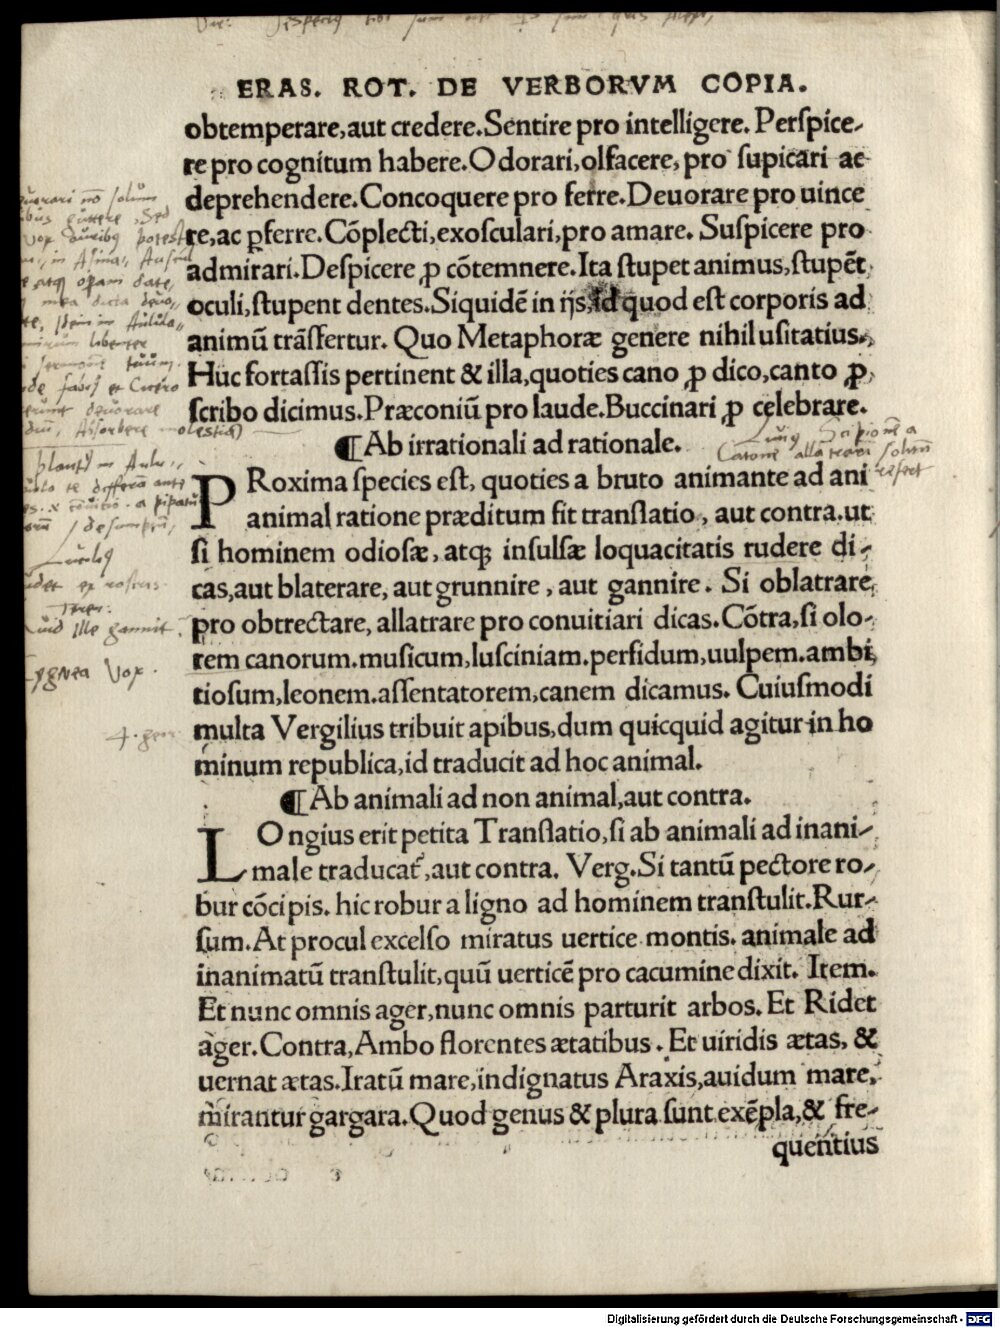 ERAS. ROT. DE VERBORVM COPIA.
obtemperare,aut credere.Sentire pro intelligere. Perſpice-
re pro cognitum habere.Odorari,olfacere, pro ſupicari ac
deprehendere.Concoquere pro ferre.Deuorare pro uince
re,ac ꝑferre.Cõplecti,exoſculari,pro amare. Suſpicere pro
admirari.Deſpicere ꝓ cõtemnere.Ita ſtupet animus,ſtupẽt
oculi,ſtupent dentes.Siquidẽ in ijs,id quod eſt corporis ad
animũ trãſfertur. Quo Metaphoræ genere nihil uſitatius.
Huc fortaſſis pertinent & illa,quoties cano ꝓ dico,canto ꝓ
ſcribo dicimus.Præconiũ pro laude.Buccinari ꝓ celebrare.
¶Ab irrationali ad rationale.
PRoxima ſpecies eſt, quoties a bruto animante ad ani
animal ratione præditum fit tranſlatio, aut contra.ut
ſi hominem odioſæ, atq; inſulſæ loquacitatis rudere di-
cas,aut blaterare, aut grunnire, aut gannire. Si oblatrare
pro obtrectare, allatrare pro conuitiari dicas.Cõtra,ſi olo-
rem canorum.muſicum,luſciniam.perfidum,uulpem.ambi
tioſum,leonem.aſſentatorem,canem dicamus. Cuiuſmodi
multa Vergilius tribuit apibus,dum quicquid agitur in ho
minum republica,id traducit ad hoc animal.
¶Ab animali ad non animal,aut contra.
LOngius erit petita Tranſlatio,ſi ab animali ad inani-
male traducat᷑,aut contra. Verg.Si tantũ pectore ro-
bur cõcipis. hic robur a ligno ad hominem tranſtulit.Rur-
ſum.At procul excelſo miratus uertice montis. animale ad
inanimatũ tranſtulit,quũ uerticẽ pro cacumine dixit. Item.
Et nunc omnis ager,nunc omnis parturit arbos. Et Ridet
ager.Contra,Ambo florentes ætatibus. Et uiridis ætas, &
uernat ætas.Iratũ mare,indignatus Araxis,auidum mare,
mirantur gargara.Quod genus & plura ſunt exẽpla,& fre-
quentius
Cygnea Vox.
Digitalisierung gefördert durch die Deutsche Forschungsgemeinschaft - DFG